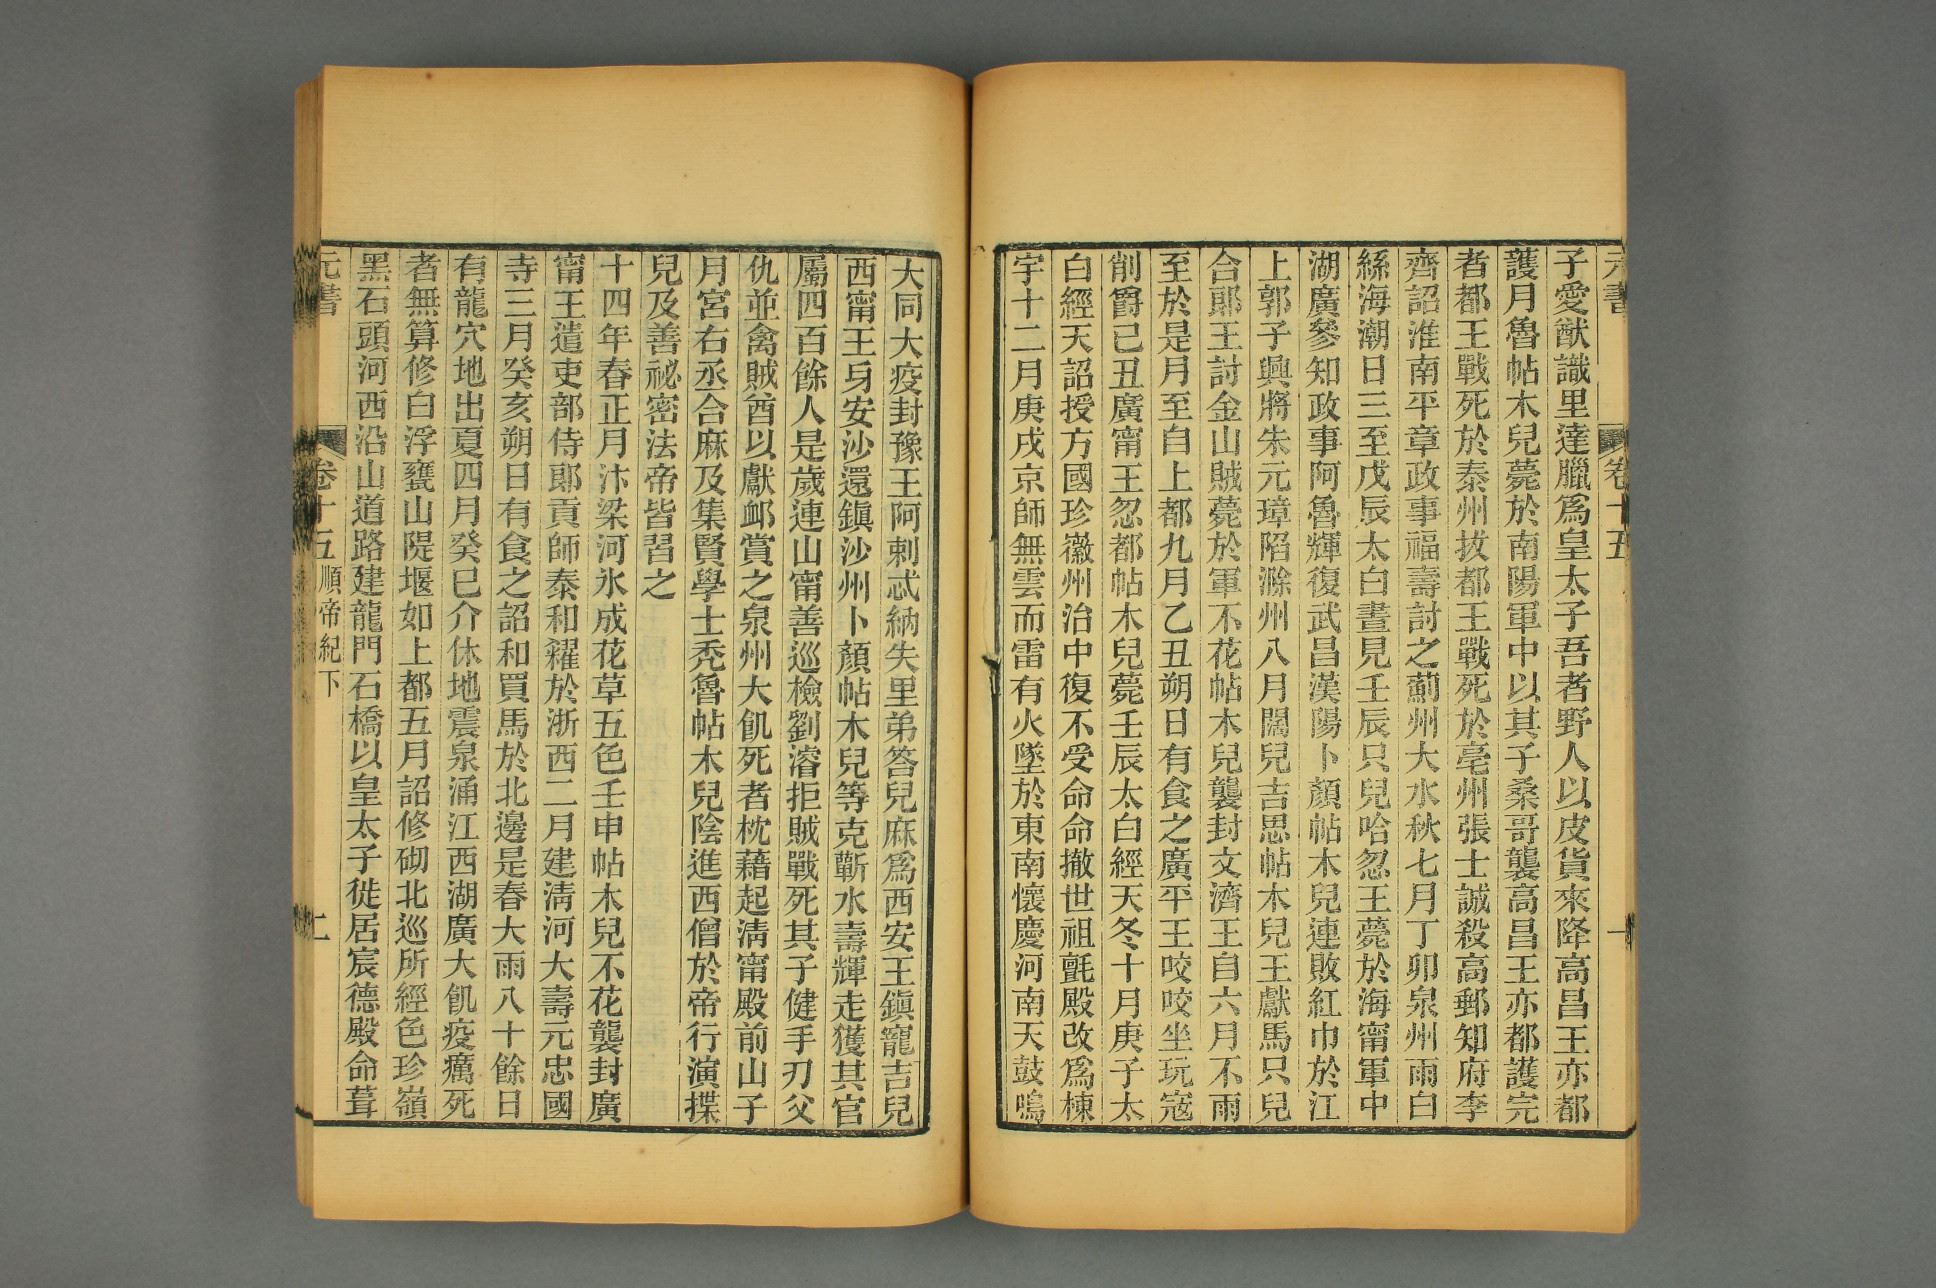 元書
卷十五
一
子愛猷識里達臘爲皇太子吾者野人以皮貨來降高昌王亦都
護月魯帖木兒薨於南陽軍中以其子桑哥襲高昌王亦都護完
者都王戰死於泰州拔都王戰死於亳州張士誠殺高郵知府李
齊詔淮南平章政事福壽討之薊州大水秋七月丁卯泉州雨白
絲海潮日三至戊辰太白晝見壬辰只兒哈忽王薨於海甯軍中
湖廣參知政事阿魯輝復武昌漢陽卜顏帖木兒連敗紅巾於江
上郭子興將朱元璋陷滁州八月闊兒吉思帖木兒王獻馬只兒
合郎王討金山賊薨於軍不花帖木兒襲封文濟王自六月不雨
至於是月至自上都九月乙丑朔日有食之廣平王咬咬坐玩寇
削爵已丑廣甯王忽都帖木兒薨壬辰太白經天冬十月庚子太
白經天詔授方國珍徽州治中復不受命命撤世祖氈殿改爲棟
宇十二月庚戌京師無雲而雷有火墜於東南懷慶河南天鼓鳴
大同大疫封豫王阿剌忒納失里弟答兒麻爲西安王鎮寵吉兒
西甯王身安沙還鎮沙州卜顏帖木兒等克蘄水壽輝走獲其官
屬四百餘人是歲連山甯善巡檢劉濬拒賊戰死其子健手刃父
仇並禽賊酋以獻卹賞之泉州大飢死者枕藉起淸甯殿前山子
月宮右丞合麻及集賢學士禿魯帖木兒陰進西僧於帝行演揲
兒及善祕密法帝皆習之
十四年春正月汴梁河氷成花草五色壬申帖木兒不花襲封廣
甯王遣吏部侍郎貢師泰和糴於浙西二月建淸河大壽元忠國
寺三月癸亥朔日有食之詔和買馬於北邊是春大雨八十餘日
有龍穴地出夏四月癸巳介休地震泉涌江西湖廣大飢疫癘死
者無算修白浮甕山隄堰如上都五月詔修砌北巡所經色珍嶺
黑石頭河西沿山道路建龍門石橋以皇太子徙居宸德殿命葺
元書
卷十五 順帝紀下
二